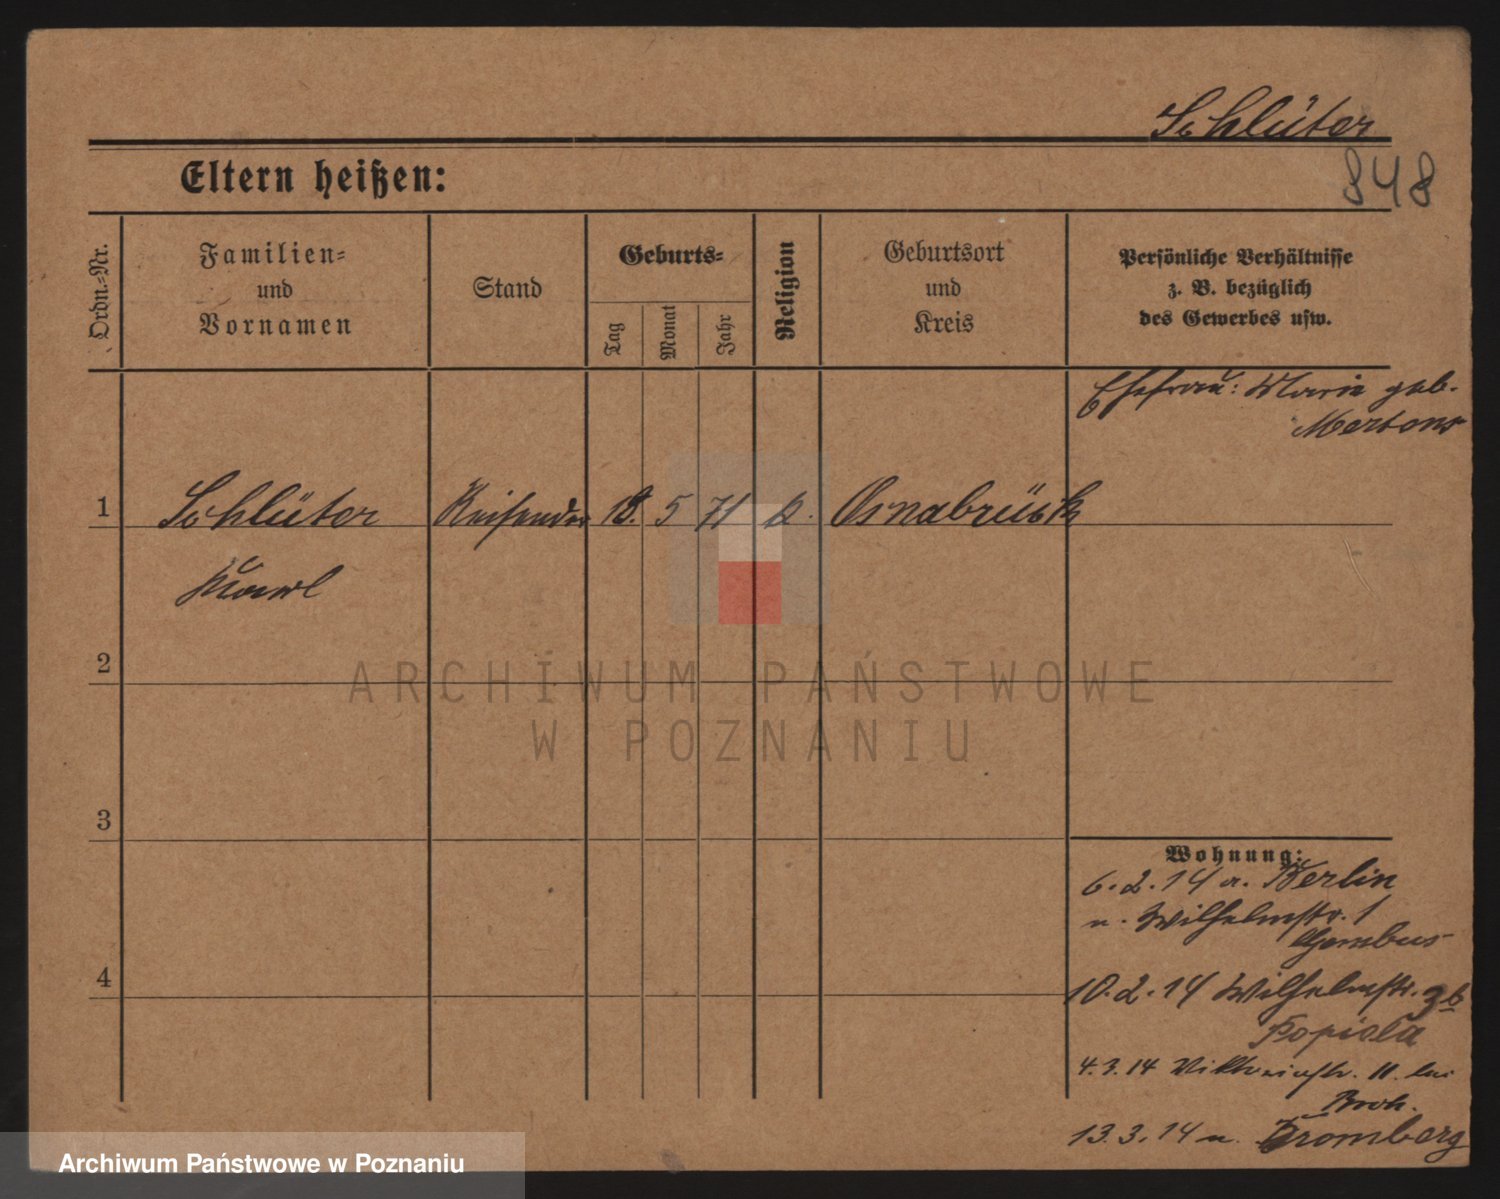 Schlüter
848
Eltern heißen:
Ordn.-Nr.
Familien- und Vornamen
Stand
Geburts-
Tag
Monat
Jahr
Religion
Geburtsort und Kreis
Persönliche Verhältnisse
z. B. bezüglich
des Gewerbes usw.
Ehefrau: Marie geb.
Mertens
1 Schlüter Reisender 18. 5 71 k. Osnabrück
Karl
2
3
4
Wohnung:
6.2.14 a. Berlin
n. Wilhelmstr. 1
10.2.14 Wilhelmstr.
Kopiela
4.3.14 Viktoriastr. 11. bei
13.3.14 n. Bromberg
ARCHIWUM PAŃSTWOWE
W POZNANIU
Archiwum Państwowe w Poznaniu